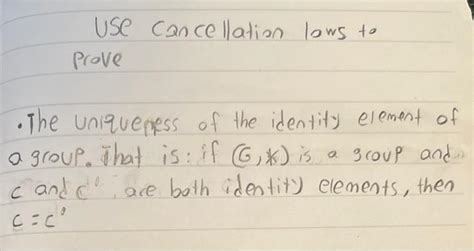 Use Cancellation laws to
Prove
• The uniqueness of the identity element of
a group. That is: if (G,*) is a group and
c and c' are both identity elements, then
c = c'